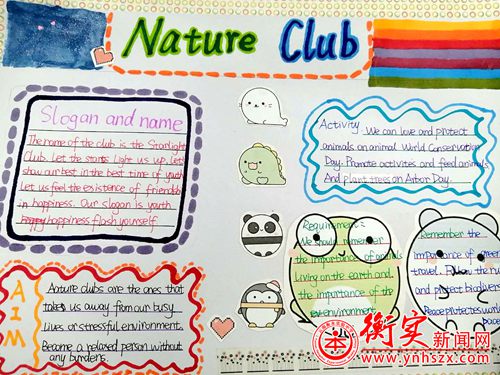 Nature Club
Slogan and name
The name of the club is the Starlight
Club. Let the stars light us up, let's
show our best in the best time of youth
Let us feel the existence of friendship
in happiness. Our slogan is youth
happy happiness flash yourself.
Activity: We can love and protect
animals on animal World Conservation
Day. Promote activities and feed animals
And plant trees on Arbor Day.
Requirement:
We should remember
the importance of animals
living on the earth and
the importance of the
environment
Remember the
importance of green
travel. Follow the
and protect biodivers
Peace protects wor
peace
AIM
Nature clubs are the ones that
take us away from our busy
lives or stressful environment.
Become a relaxed person without
any burdens.
衡实新闻网
www.ynhszx.com